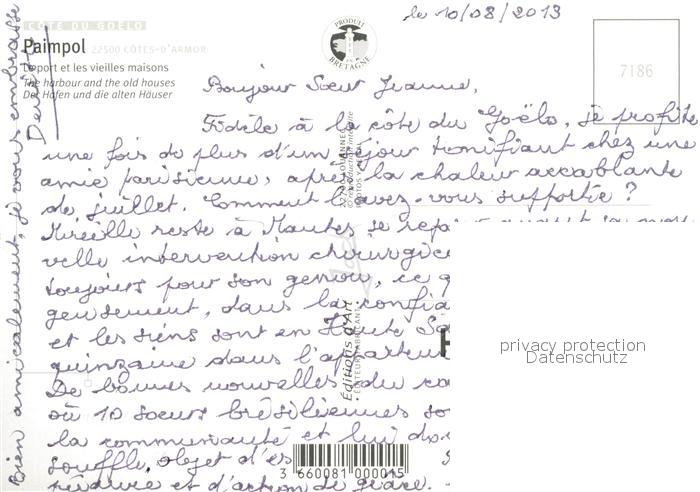 CÔTE DU GOËLO
Paimpol 22500 CÔTES-D'ARMOR
Le port et les vieilles maisons
The harbour and the old houses
Der Hafen und die alten Häuser
PRODUIT EN BRETAGNE
7186
le 10/08/2013
Bonjour Sœur Jeanne,
Fidèle à la côte du Goëlo, je profite
une fois de plus d'un séjour tonifiant chez une
amie parisienne, après la chaleur accablante
de juillet. Comment l'avez-vous supportée ?
Mireille reste à Mantes se
velle intervention
toujours pour son genou, ce
dans la
et les siens sont en Haute
quinzaine dans
De bonnes nouvelles du
où 10 sœurs brésiliennes
la communauté et lui
souffle, objet
et d'action de grâce.
Bien amicalement, je vous embrasse
Éditions d'Art
ÉDITEUR FABRICANT
3 660081 000015
privacy protection
Datenschutz